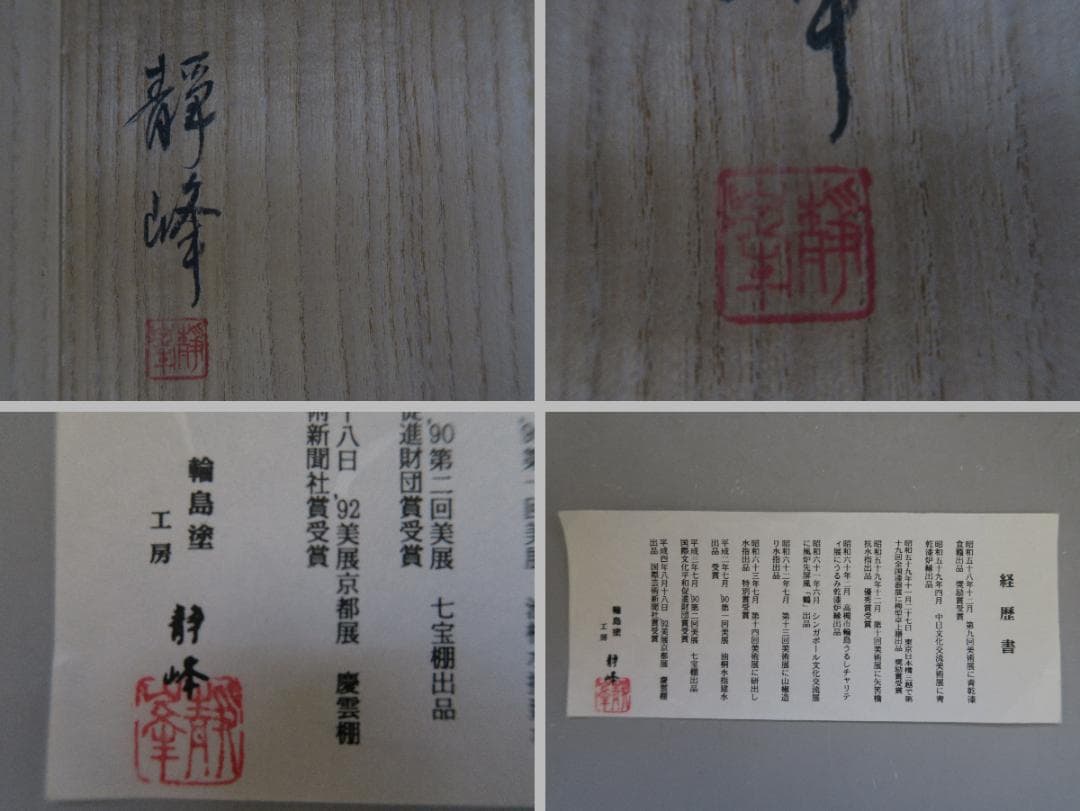 靜峰
靜峰
靜峰
'90第二回美展 七宝棚出品
促進財団賞受賞
十八日 '92美展京都展 慶雲棚
術新聞社賞受賞
輪島塗
工房 静峰
靜峯
経歴書
昭和五十八年十二月 第九回美術展に青乾漆
食籠出品 奨励賞受賞
昭和五十九年四月 中日文化交流美術展に青
乾漆炉縁出品
昭和五十九年十一月二十七日 東京日本橋三越で第
昭和五十九年十二月 第十回美術展に矢筈橋
杭水指出品 優秀賞受賞
昭和六十年二月 高槻市輪島うるしチャリテ
ィ展にうるみ乾漆炉縁出品
昭和六十一年六月 シンガポール文化交流展
に風炉先屏風「鶴」出品
昭和六十二年七月 第十三回美術展に山樵造
り水指出品
昭和六十三年七月 第十四回美術展に研出し
水指出品 特別賞受賞
平成二年七月 '90第一回美展 油桐水指建水
出品 受賞
平成三年七月 '90第二回美展 七宝棚出品
国際文化平和促進財団賞受賞
平成四年八月十八日 '92美展京都展 慶雲棚
出品 国際芸術新聞社賞受賞
輪島塗
工房 静峰
靜峯